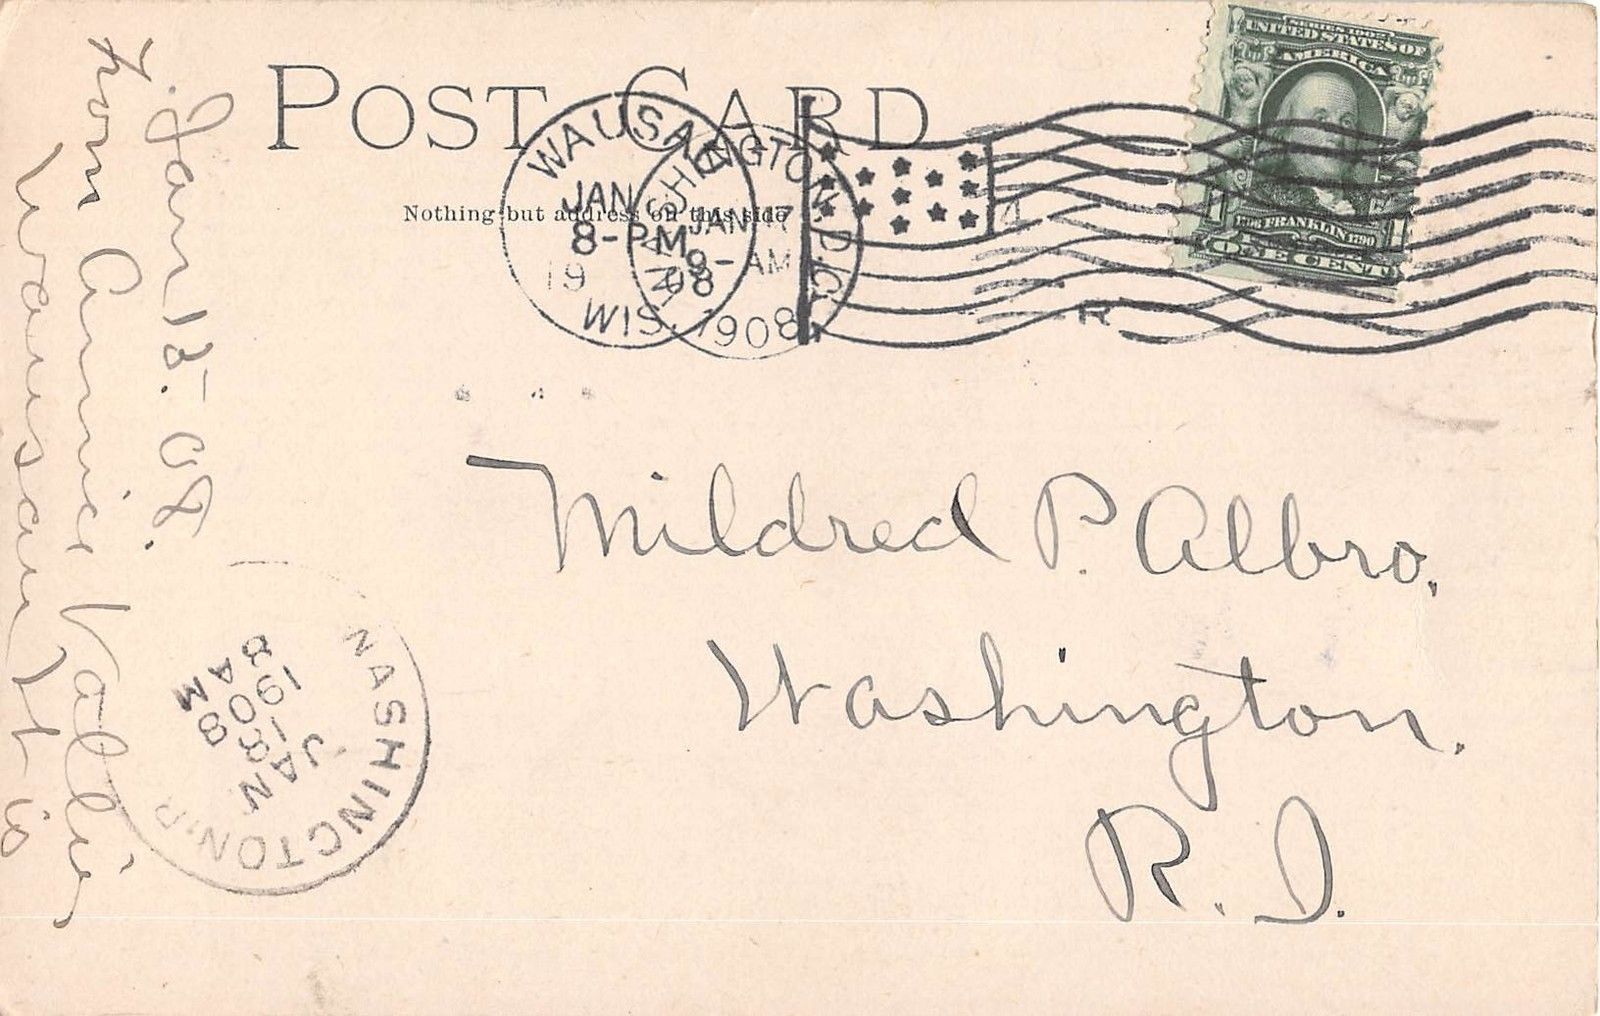 POST CARD
Nothing but address on this side
WAUSAU
JAN
8-PM
19 08
WIS.
WASHINGTON, D.C.
JAN 17
9-AM
1908
4
R
SERIES 1902
UNITED STATES OF
AMERICA
1 1
FRANKLIN 1790
ONE CENT
Mildred P. Albro.
Washington.
R.I.
Jan 15. 08.
From Annie
Wausau
WASHINGTON, R.
JAN
18
1908
8 AM